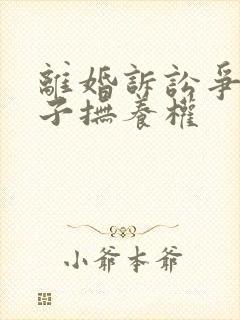 離婚訴訟爭
子撫養權
小爺本爺